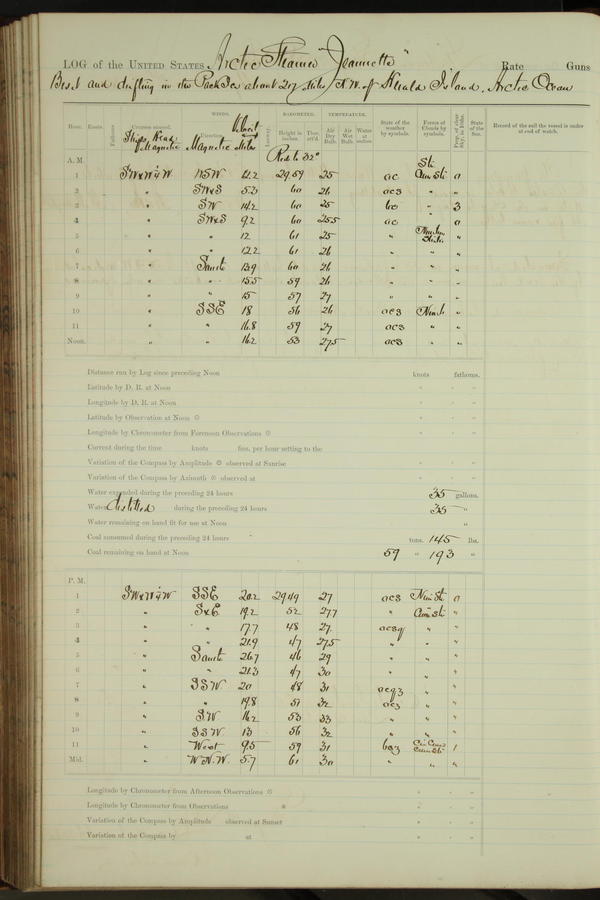 LOG of the UNITED STATES Arctic Steamer "Jeannette" Rate Guns
Beset and drifting in the Pack Ice about 217 Miles N.W. of Herald Island. Arctic Ocean
WINDS. BAROMETER. TEMPERATURE.
Hour. Knots. Fathoms. Courses steered. Direction. Velocity Leeway. Height in inches. Ther. att'd. Air Dry Bulb. Air Wet Bulb. Water at surface. State of the weather by symbols. Forms of Clouds by symbols. Prop. of clear sky, in 10ths. State of the Sea. Record of the sail the vessel is under at end of watch.
Ships Head Magnetic Magnetic Miles
Red. to 32°
A.M. Str
1 SW×W½W WSW 12.2 29.59 25 oc Cum St 0
2 " SW×S 5.3 60 26 ocs " "
3 " SW 14.2 60 25 bc " 3
4 " SW×S 9.2 60 25.5 oc " 0
5 " " 12 61 25 " "
6 " " 12.2 61 26 " " "
7 " South 13.9 60 26 " " "
8 " " 15.5 59 26 " " "
9 " " 15 57 27 " " "
10 " SSE 18 56 26 ocs Nim "
11 " " 16.8 59 27 ocs " "
Noon. " " 16.2 53 27.5 ocs " "
Distance run by Log since preceding Noon knots fathoms.
Latitude by D. R. at Noon ° ' "
Longitude by D. R. at Noon ° ' "
Latitude by Observation at Noon ⊙ ° ' "
Longitude by Chronometer from Forenoon Observations ⊙ ° ' "
Current during the time knots fms. per hour setting to the
Variation of the Compass by Amplitude ⊙ observed at Sunrise ° ' "
Variation of the Compass by Azimuth ⊙ observed at ° ' "
Water expended during the preceding 24 hours 35 gallons.
Water distilled during the preceding 24 hours 35 "
Water remaining on hand fit for use at Noon "
Coal consumed during the preceding 24 hours tons. 145 lbs.
Coal remaining on hand at Noon 59 " 193 "
P.M.
1 SW×W½W SSE 20.2 29.49 27 ocs Nim St 0
2 " S×E 19.2 52 27.7 " Cum St "
3 " " 17.7 48 27 ocsq " "
4 " " 21.9 47 27.5 " " "
5 " South 26.7 46 29 " " "
6 " " 21.3 47 30 " " "
7 " SSW 20 48 31 ocqz " "
8 " " 19.8 51 32 ocs " "
9 " S.W 16.2 53 33 " " "
10 " SSW 13 56 32 " " "
11 " West 9.5 59 31 bcz Cir Cum Cum St 1
Mid. " W.N.W. 5.7 61 30 " " "
Longitude by Chronometer from Afternoon Observations ⊙ ° ' "
Longitude by Chronometer from Observations ° ' "
Variation of the Compass by Amplitude observed at Sunset ° ' "
Variation of the Compass by at ° ' "